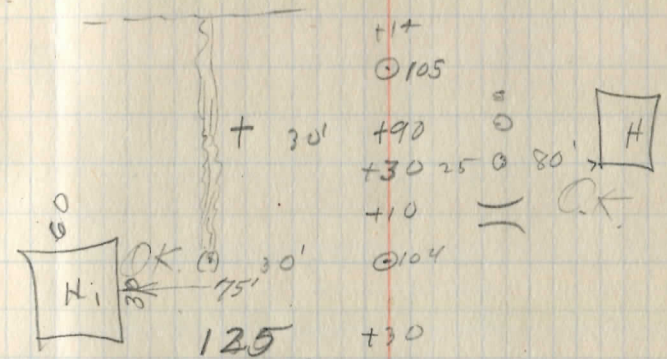 +14
⊙105
H
+ 30' +90
+30 25 80'
O.K.
+10
60
OK. 30' ⊙104
H, 30 75'
125 +30